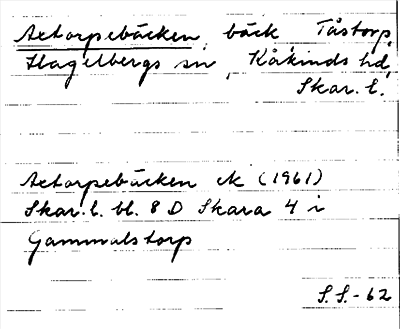 Axtorpsbäcken, bäck Tåstorp,
Hagelbergs sn, Kåkinds hd,
Skar. l.
Axtorpsbäcken ek (1961)
Skar. l. bl. 8 D Skara 4 i
Gammalstorp
S.S.-62